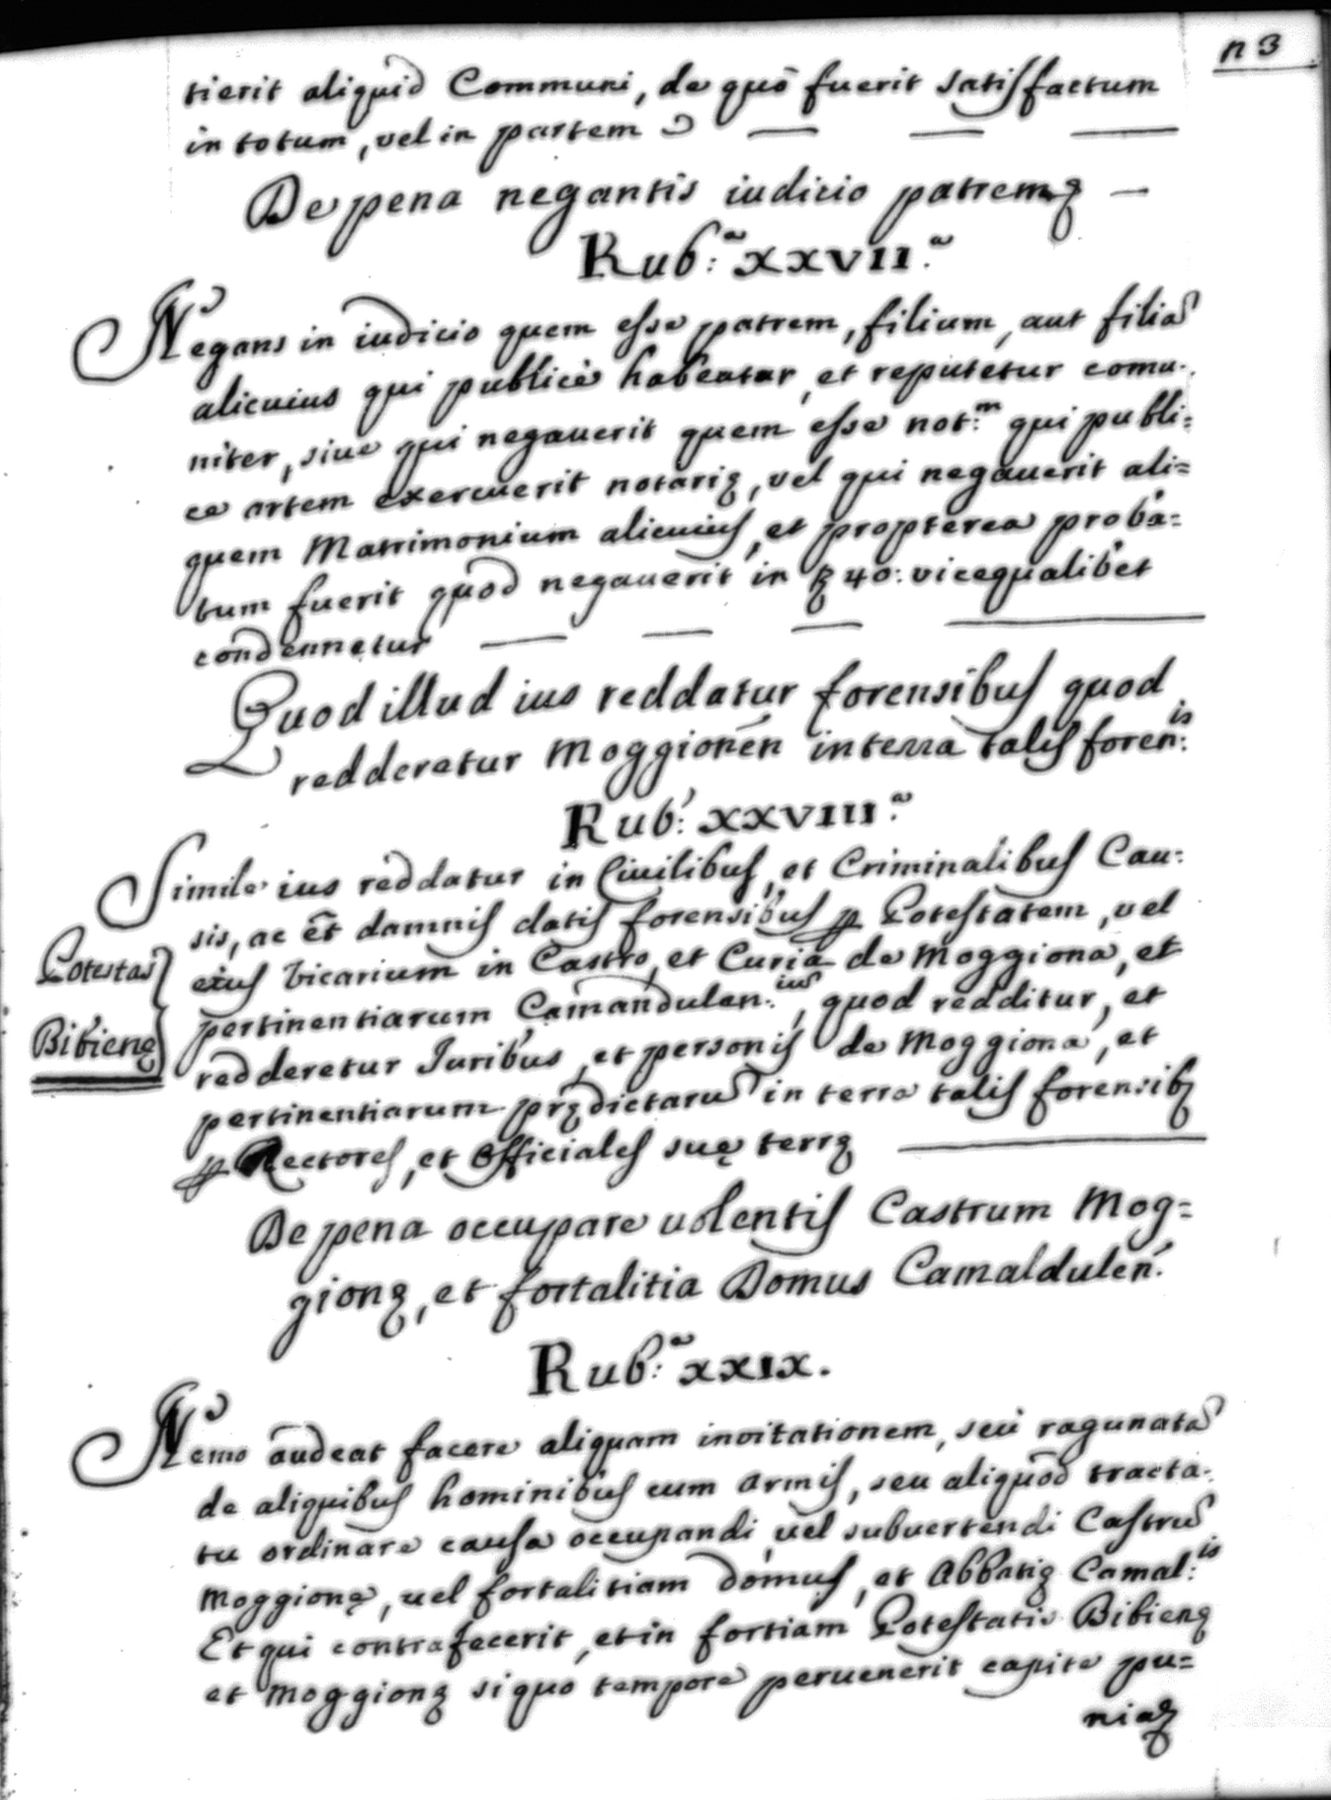 n 3
tierit aliquid Communi, de quo fuerit satisfactum
in totum, vel in partem
De pena negantis iudicio patremq;
Rub:ª XXVII.ª
Negans in iudicio quem esse patrem, filium, aut filiã
alicuius qui publicè habeatur, et reputetur comu-
niter, siue qui negauerit quem esse not:m qui publi=
ce artem exercuerit notarię, vel qui negauerit ali=
quem Matrimonium alicuius, et propterea proba=
tum fuerit quod negauerit in 40: vice qualibet
condennetur
Quod illud ius reddatur forensibus quod
redderetur Moggionen in terra talis foren:is
Rub: XXVIII.ª
Simile ius reddatur in Ciuilibus, et Criminalibus Cau-
sis, ac et̃ damnis datis forensibus p Potestatem, vel
eius Vicarium in Castro, et Curia de Moggiona, et
pertinentiarum Camandulen:ius, quod redditur, et
redderetur Iuribus, et personis de Moggiona, et
pertinentiarum prędictarũ in terra talis forensib;
p Rectores, et Officiales suę terrę
Potestas
Bibienę
De pena occupare uolentis Castrum Mog=
gionę, et fortalitia Domus Camaldulen:
Rub:ª XXIX.
Nemo audeat facere aliquam inuitationem, seu ragunatã
de aliquibus hominibus cum armis, seu aliquod tracta-
tu ordinare causa occupandi, uel subuertendi Castrũ
Moggionę, uel fortalitiam domus, et Abbatię Camal:is
Et qui contrafecerit, et in fortiam Potestatis Bibienę
et Moggionę si quo tempore peruenerit capite pu=
niat;